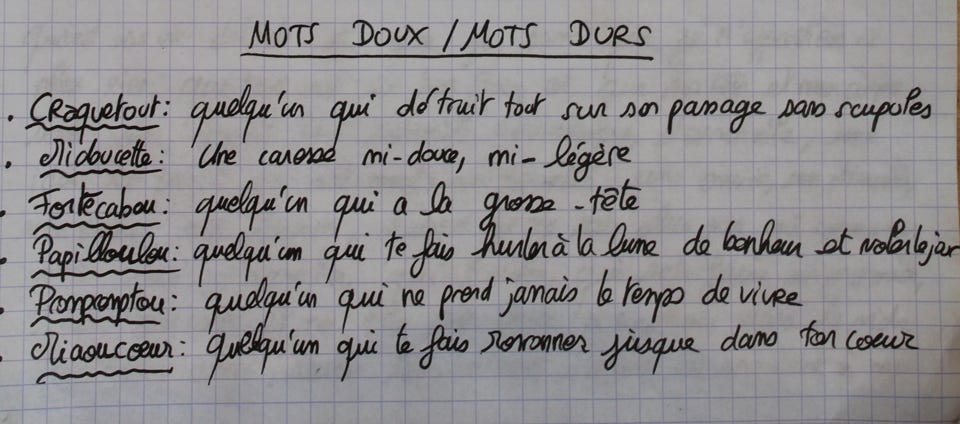 MOTS DOUX / MOTS DURS
. CRaquetout : quelqu'un qui détruit tout sur son passage sans scupules
. Midoucette : Une caresse mi-douce, mi-légère
. Fortécabou : quelqu'un qui a la grosse-tête
. Papilloulou : quelqu'un qui te fais hurler à la lune de bonheur et voler le jour
. Pomponptou : quelqu'un qui ne prend jamais le temps de vivre
. Miaoucoeur : quelqu'un qui te fais ronronner jusque dans ton coeur